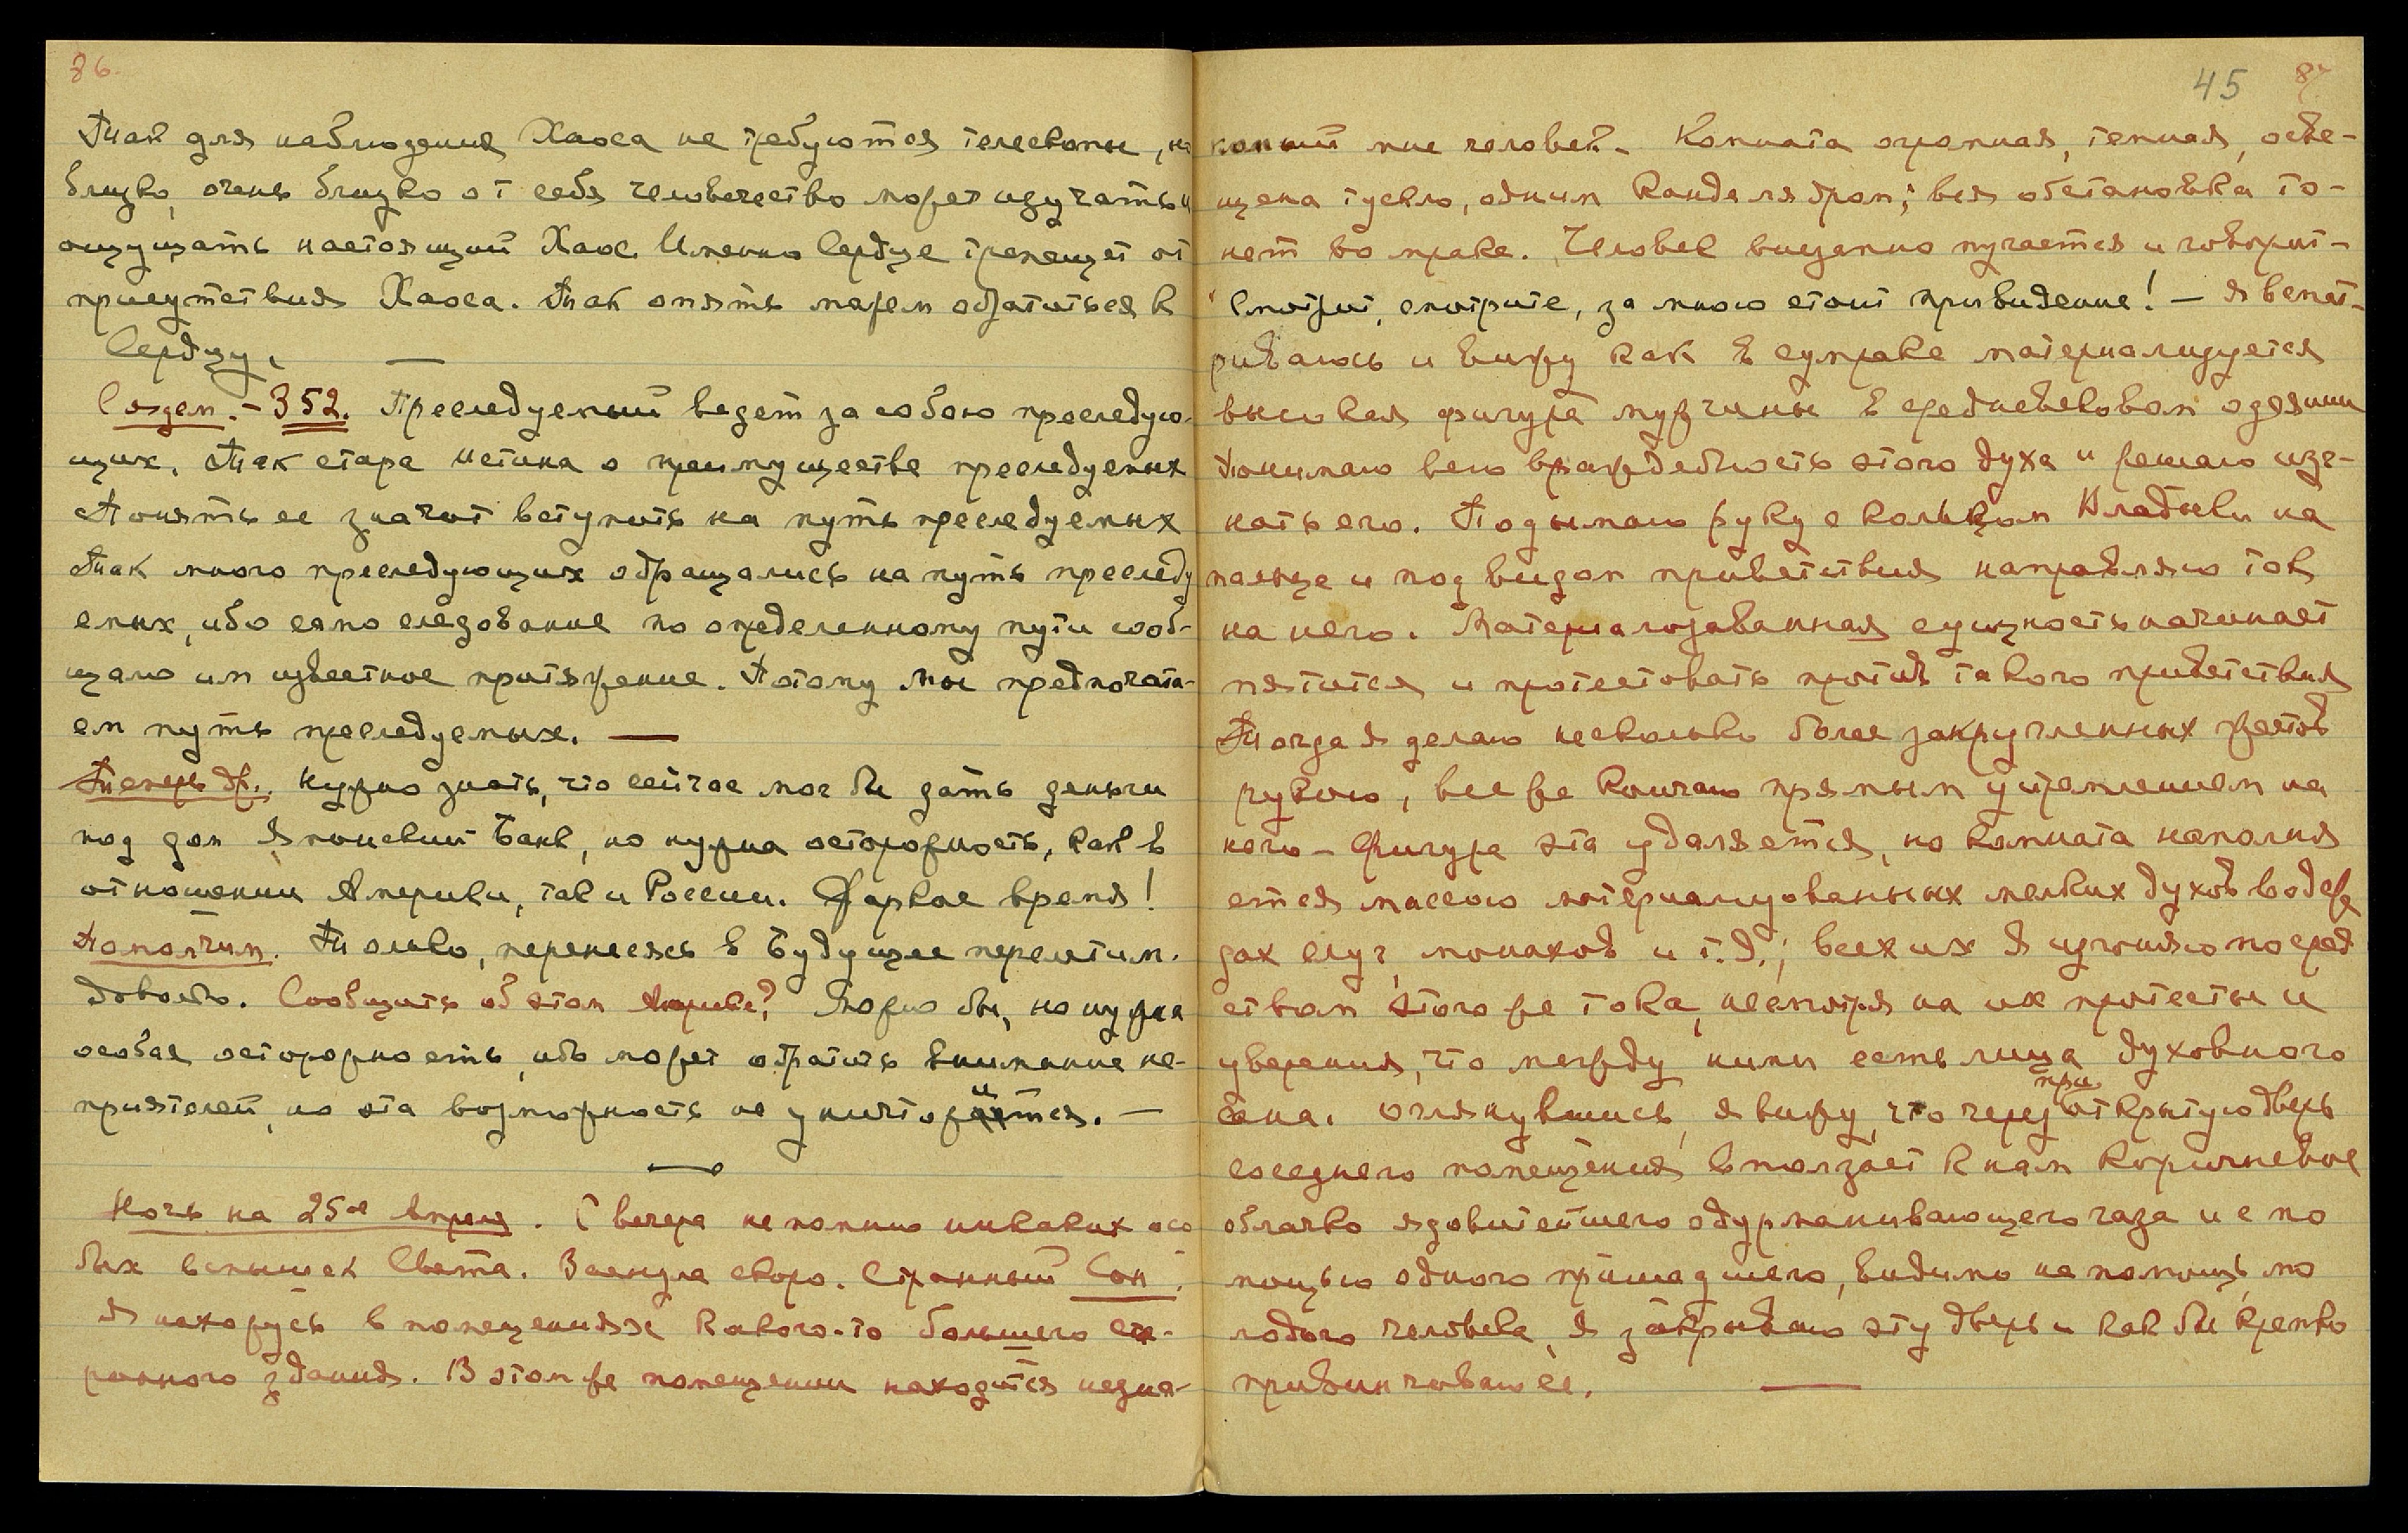 86.
Так для наблюдения Хаоса не требуются телескопы, но
близко, очень близко от себя человечество может изучать и
ощущать настоящий Хаос. Именно Сердце трепещет от
присутствия Хаоса. Так опять можем обратиться к
Сердцу.
Создам. – 352. Преследуемый ведет за собою преследую-
щих. Так стара истина о преимуществе преследуемых
Понять ее значит вступить на путь преследуемых
Так много преследующих обращались на путь преследу
емых, ибо само следование по определенному пути сооб-
щало им известное притяжение. Потому Мы предпочита-
ем путь преследуемых. —
Теперь др.. Нужно знать, что сейчас мог бы дать деньги
под дом Японский Банк, но нужна осторожность, как в
отношении Америки, так и России. Жаркое время!
Помолчим. Только, перенесясь в Будущее перелетим.
Довольно. Сообщить об этом Америке? Можно бы, но нужна
особая осторожность, ибо может обратить внимание не-
приятелей, но эта возможность не уничтожится. —
Ночь на 25ое Апреля. С вечера не помню никаких осо
бых вспышек Света. Заснула скоро. Странный Сон.
Я нахожусь в помещениях какого-то большого ста-
ринного здания. В этом же помещении находится незна-
45 87
комый мне человек. Комната огромная, темная, осве-
щена тускло, одним канделябром; вся обстановка то-
нет во мраке. Человек внезапно пугается и говорит –
Смотрит, смотрите, за мною стоит привидение! – Я всмат-
риваюсь и вижу как в сумраке материализуется
высокая фигура мужчины в средневековом одеянии
Понимаю всю враждебность этого духа и решаю изг-
нать его. Подымаю руку с кольцом Владыки на
пальце и под видом приветствия направляю ток
на него. Материализованная сущность начинает
пятится и протестовать против такого приветствия
Тогда я делаю несколько более закругленных жестов
рукою, все же кончаю прямым устремлением на
него – Фигура эта удаляется, но комната наполня
ется массою материализованных мелких духов в одеж
дах слуг, монахов и т.д.; всех их я изгоняю посред
ством этого же тока, несмотря на их протесты и
уверения, что между ними есть лица духовного
сана. Оглянувшись, я вижу, что через приоткрытую дверь
соседнего помещения вползает к нам коричневое
облачко ядовитейшего одурманивающего газа и с по
мощью одного пришедшего, видимо на помощь, мо
лодого человека, я закрываю эту дверь и как бы крепко
привинчиваю ее. —